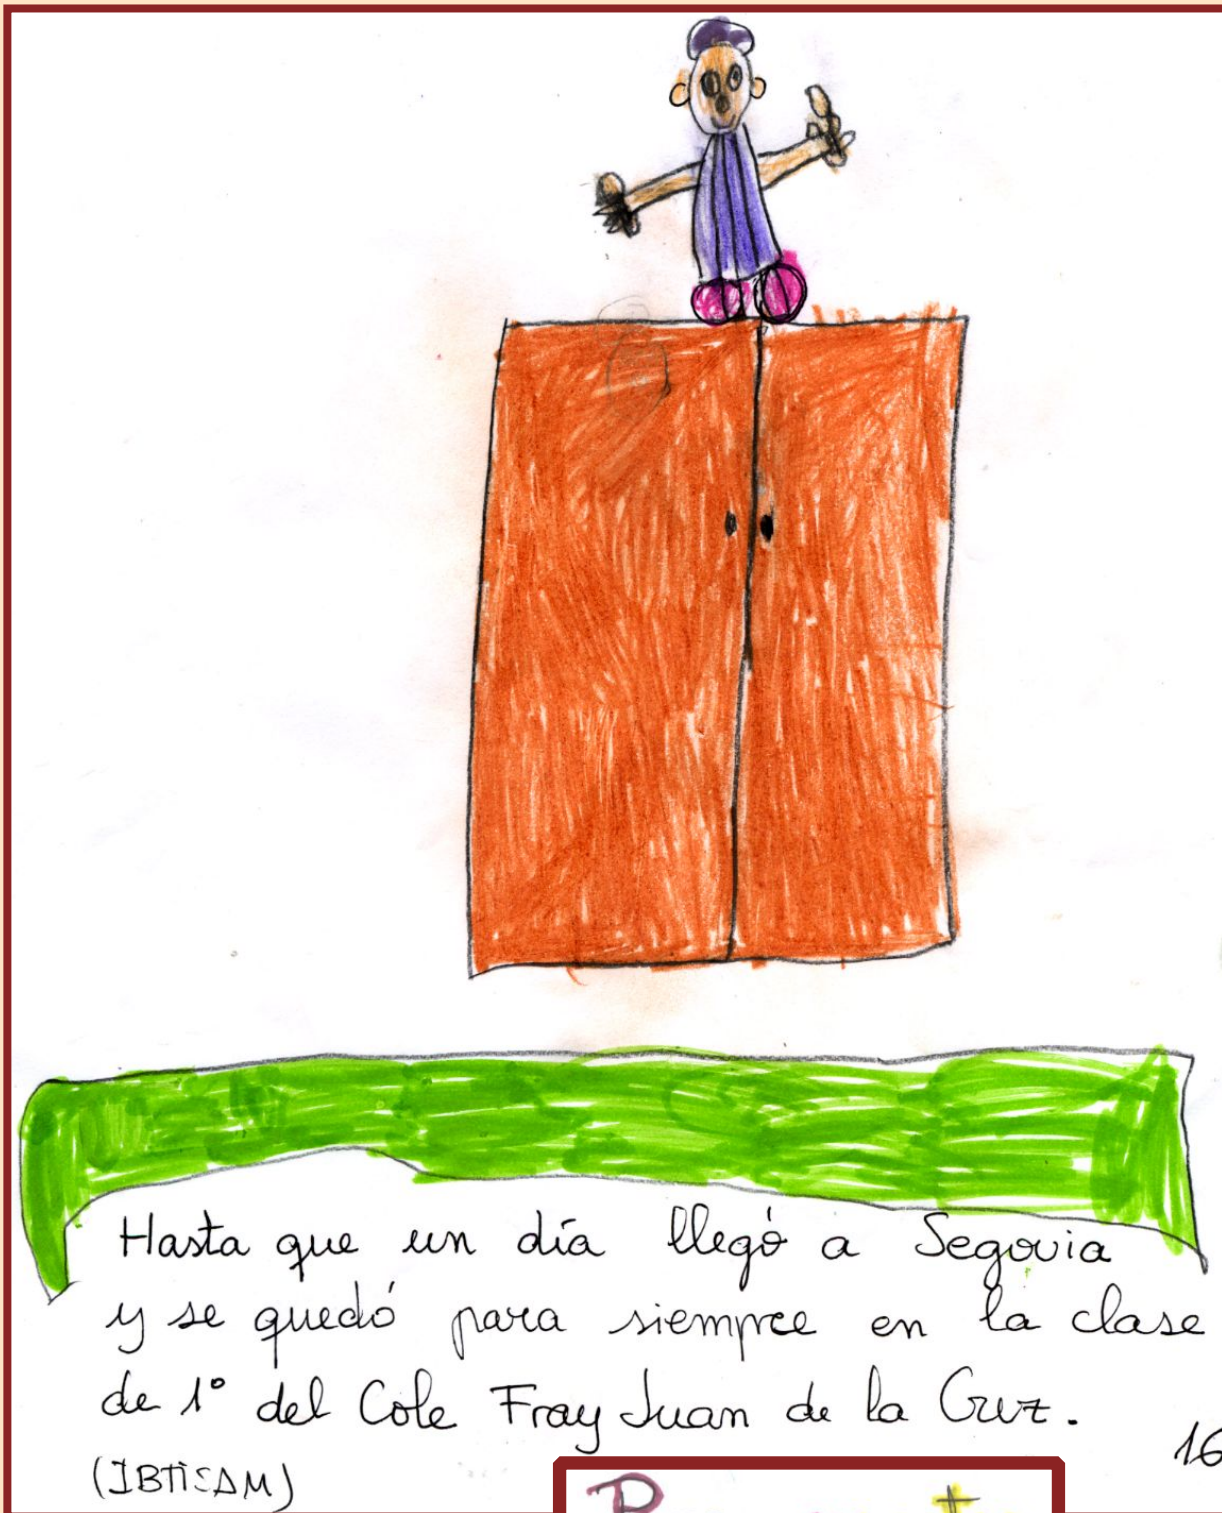 Hasta que un día llegó a Segovia
y se quedó para siempre en la clase
de 1º del Cole Fray Juan de la Cruz.
16
(IBTISAM)